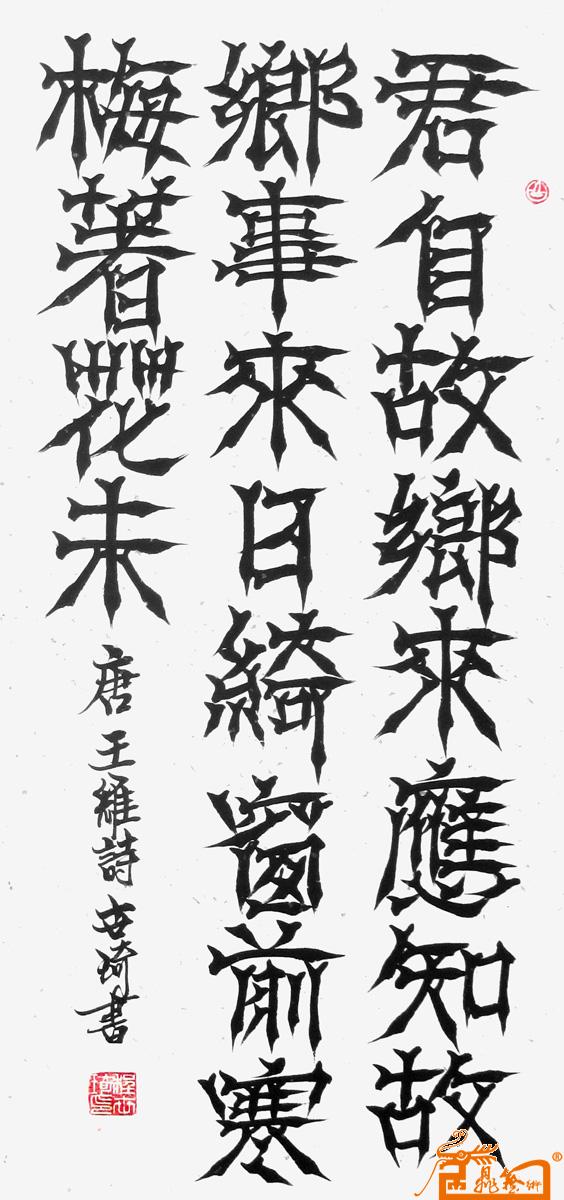 君自故鄉來應知故
鄉事來日綺窗前寒
梅著花未
唐王維詩 古琦書